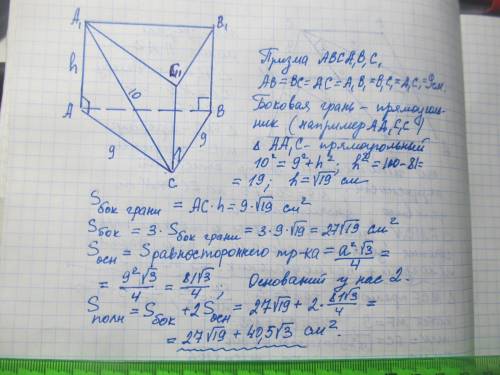 A₁
B₁
C₁
h
10
A
B
9
9
C
Призма ABCA₁B₁C₁
AB=BC=AC=A₁B₁=B₁C₁=A₁C₁=9см.
Боковая грань - прямоуголь-
ник (например AA₁C₁C)
Δ AA₁C - прямоугольный
10²=9²+h²; h²=100-81=
=19; h=√19 см
Sбок грани = AC·h=9·√19 см²
Sбок = 3·Sбок грани = 3·9·√19=27√19 см²
Sосн = Sравностороннего тр-ка = a²√3/4 =
= 9²√3/4 = 81√3/4; Оснований у нас 2.
Sполн = Sбок + 2Sосн = 27√19 + 2·81√3/4 =
= 27√19 + 40,5√3 см².